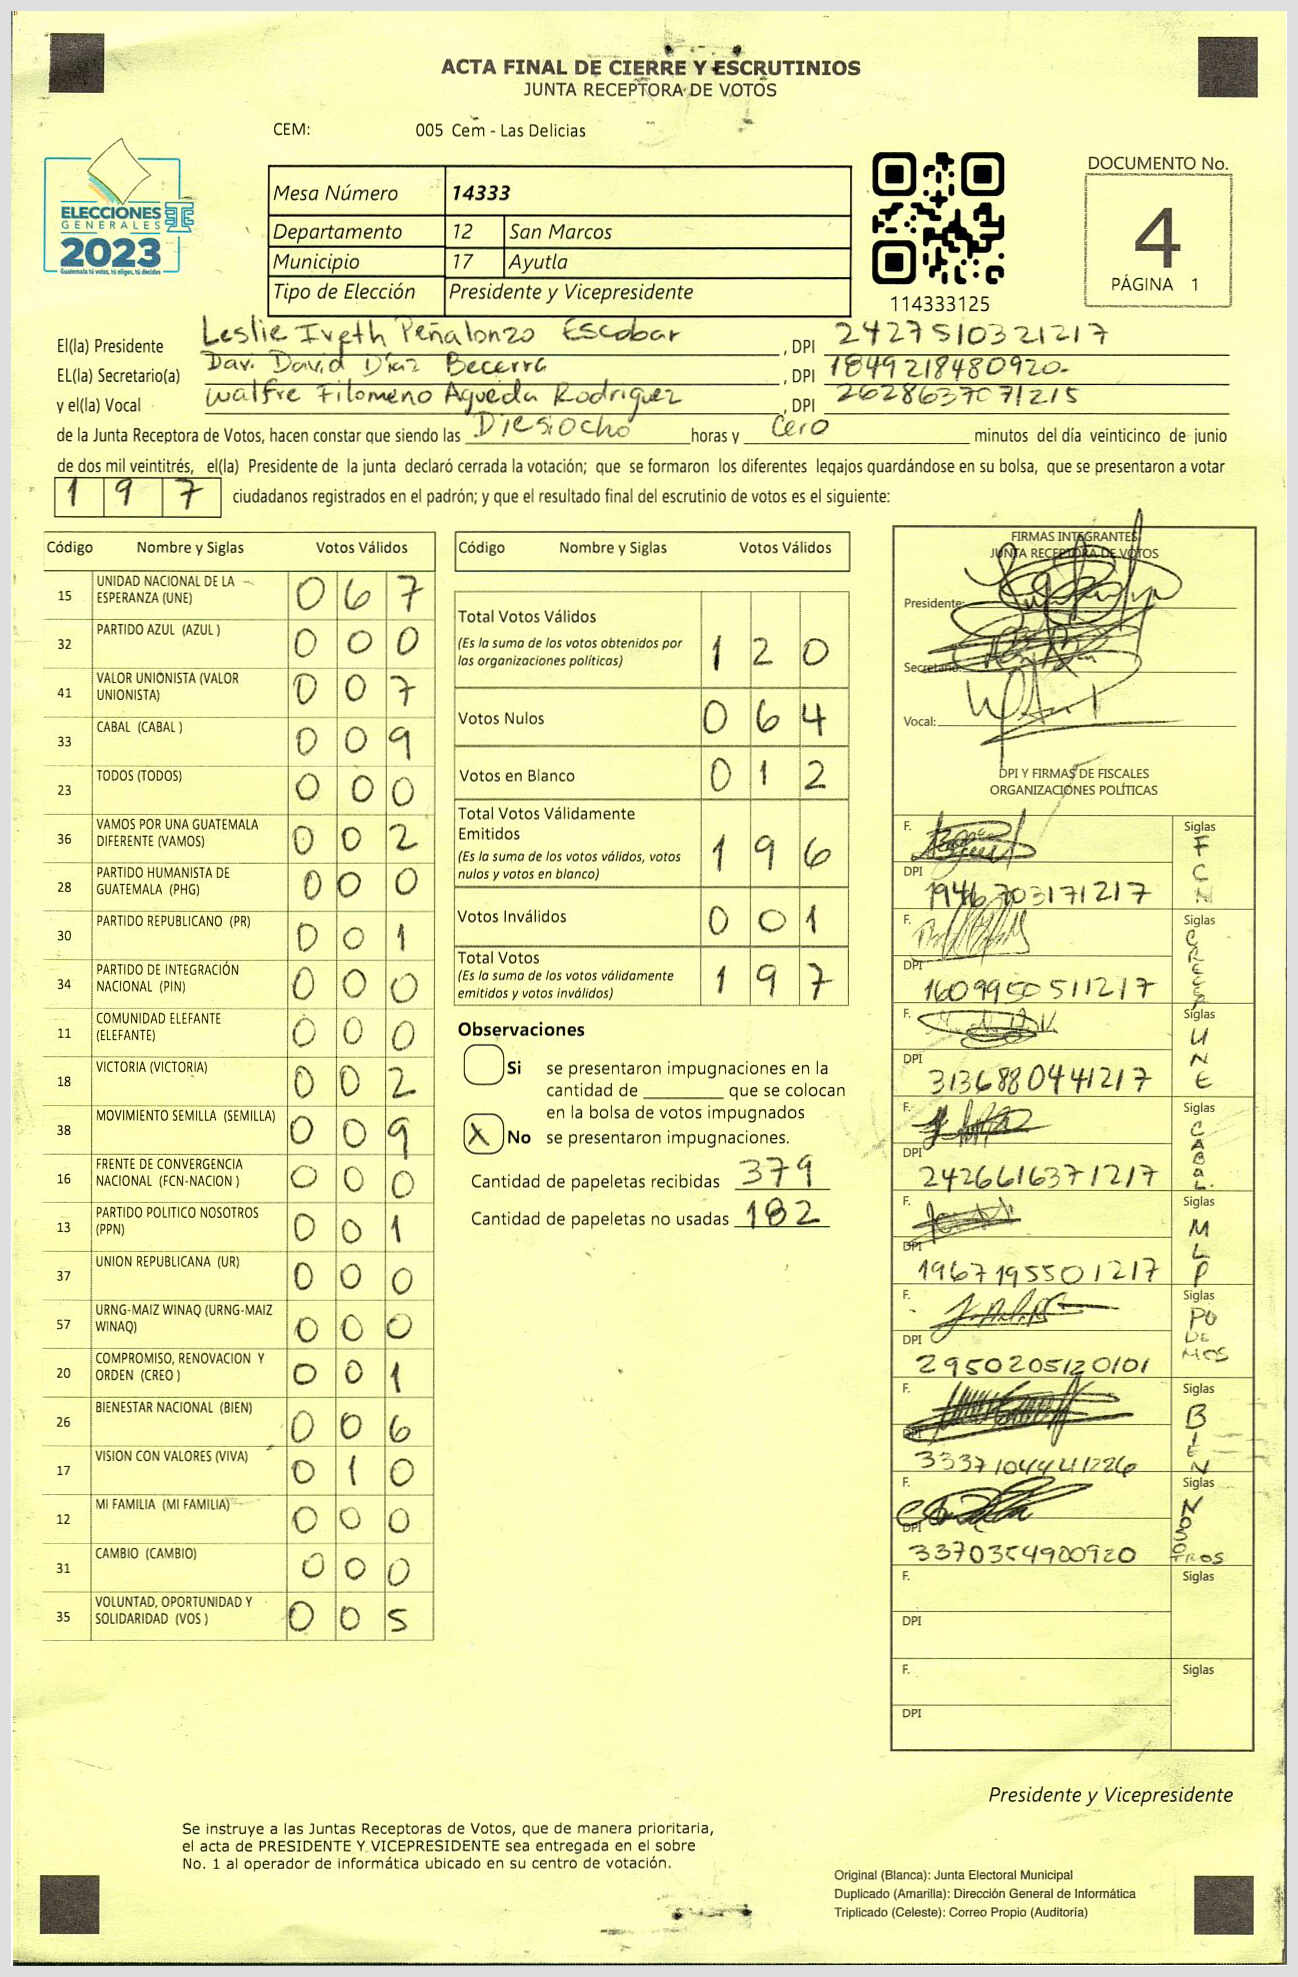 ACTA FINAL DE CIERRE Y ESCRUTINIOS
JUNTA RECEPTORA DE VOTOS
CEM: 005 Cem - Las Delicias
ELECCIONES
GENERALES
2023
Guatemala tú votas, tú eliges, tú decides
Mesa Número 14333
Departamento 12 San Marcos
Municipio 17 Ayutla
Tipo de Elección Presidente y Vicepresidente
114333125
DOCUMENTO No.
4
PÁGINA 1
El(la) Presidente Leslie Iveth Peñalonzo Escobar , DPI 2427510321217
EL(la) Secretario(a) Davi David Díaz Becerra , DPI 1849218480920
y el(la) Vocal Walfre Filomeno Agueda Rodriguez , DPI 2628637071215
de la Junta Receptora de Votos, hacen constar que siendo las Diesiocho horas y Cero minutos del día veinticinco de junio
de dos mil veintitrés, el(la) Presidente de la junta declaró cerrada la votación; que se formaron los diferentes legajos guardándose en su bolsa, que se presentaron a votar
197 ciudadanos registrados en el padrón; y que el resultado final del escrutinio de votos es el siguiente:
Código Nombre y Siglas Votos Válidos
15 UNIDAD NACIONAL DE LA ESPERANZA (UNE) 067
32 PARTIDO AZUL (AZUL ) 000
41 VALOR UNIONISTA (VALOR UNIONISTA) 007
33 CABAL (CABAL ) 009
23 TODOS (TODOS) 000
36 VAMOS POR UNA GUATEMALA DIFERENTE (VAMOS) 002
28 PARTIDO HUMANISTA DE GUATEMALA (PHG) 000
30 PARTIDO REPUBLICANO (PR) 001
34 PARTIDO DE INTEGRACIÓN NACIONAL (PIN) 000
11 COMUNIDAD ELEFANTE (ELEFANTE) 000
18 VICTORIA (VICTORIA) 002
38 MOVIMIENTO SEMILLA (SEMILLA) 009
16 FRENTE DE CONVERGENCIA NACIONAL (FCN-NACION ) 000
13 PARTIDO POLITICO NOSOTROS (PPN) 001
37 UNION REPUBLICANA (UR) 000
57 URNG-MAIZ WINAQ (URNG-MAIZ WINAQ) 000
20 COMPROMISO, RENOVACION Y ORDEN (CREO ) 001
26 BIENESTAR NACIONAL (BIEN) 006
17 VISION CON VALORES (VIVA) 010
12 MI FAMILIA (MI FAMILIA) 000
31 CAMBIO (CAMBIO) 000
35 VOLUNTAD, OPORTUNIDAD Y SOLIDARIDAD (VOS ) 005
Código Nombre y Siglas Votos Válidos
Total Votos Válidos 120
(Es la suma de los votos obtenidos por
las organizaciones políticas)
Votos Nulos 064
Votos en Blanco 012
Total Votos Válidamente
Emitidos 196
(Es la suma de los votos válidos, votos
nulos y votos en blanco)
Votos Inválidos 001
Total Votos 197
(Es la suma de los votos válidamente
emitidos y votos inválidos)
Observaciones
Si se presentaron impugnaciones en la
cantidad de ________ que se colocan
en la bolsa de votos impugnados
X No se presentaron impugnaciones.
Cantidad de papeletas recibidas 379
Cantidad de papeletas no usadas 182
FIRMAS INTEGRANTES
JUNTA RECEPTORA DE VOTOS
Presidente:
Secretario:
Vocal:
DPI Y FIRMAS DE FISCALES
ORGANIZACIONES POLÍTICAS
F. Siglas FCN
DPI 1946703171217
F. Siglas
DPI 1609950511217
F. Siglas UNE
DPI 3136880441217
F. Siglas CABAL
DPI 2426616371217
F. Siglas MLP
DPI 1967195501217
F. Siglas PODEMOS
DPI 2950205120101
F. Siglas BIEN
DPI 3337104441226
F. Siglas NOSOTROS
DPI 3370354900920
F. Siglas
DPI
F. Siglas
DPI
Presidente y Vicepresidente
Se instruye a las Juntas Receptoras de Votos, que de manera prioritaria,
el acta de PRESIDENTE Y VICEPRESIDENTE sea entregada en el sobre
No. 1 al operador de informática ubicado en su centro de votación.
Original (Blanca): Junta Electoral Municipal
Duplicado (Amarilla): Dirección General de Informática
Triplicado (Celeste): Correo Propio (Auditoría)